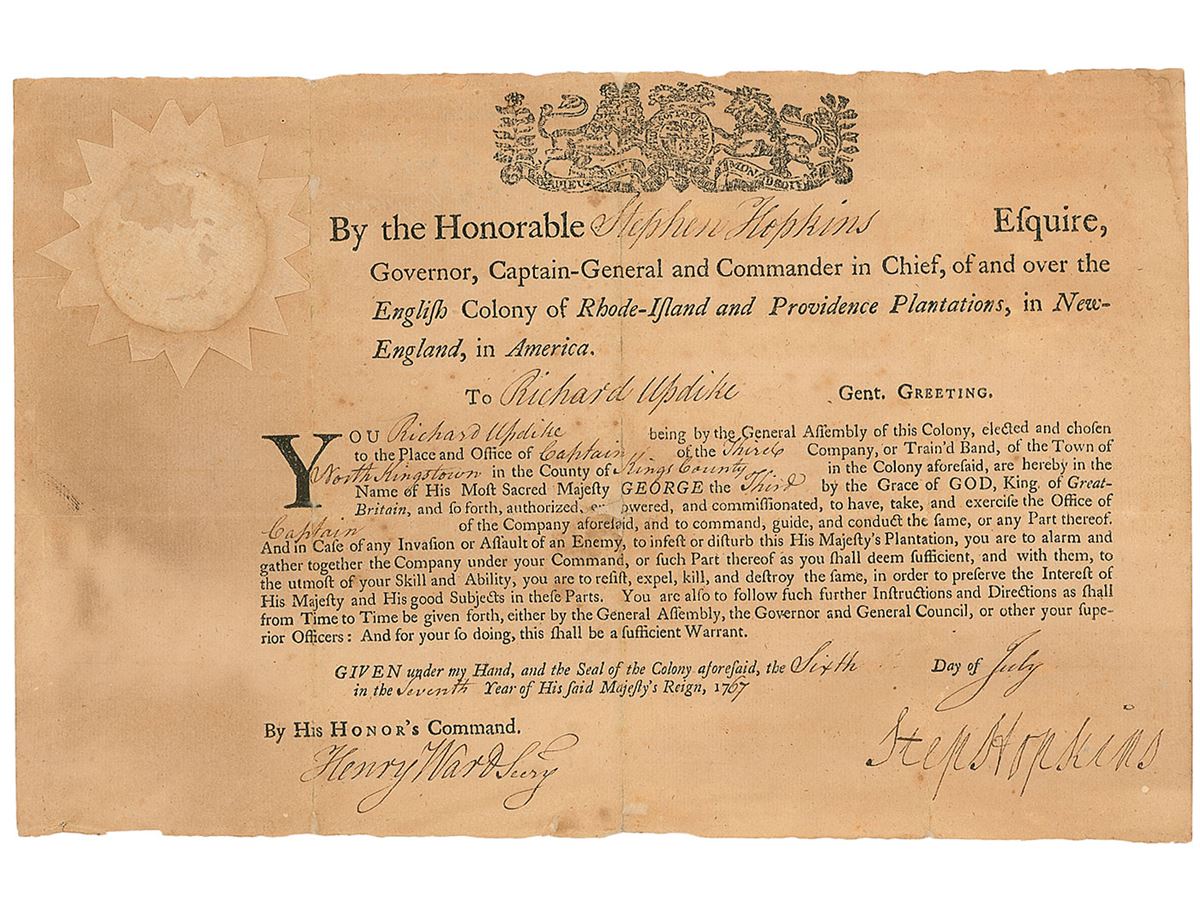 DIEU ET MON DROIT
By the Honorable Stephen Hopkins Eſquire,
Governor, Captain-General and Commander in Chief, of and over the
Engliſh Colony of Rhode-Iſland and Providence Plantations, in New-
England, in America.
To Richard Updike Gent. GREETING.
YOU Richard Updike being by the General Aſſembly of this Colony, elected and choſen
to the Place and Office of Captain of the Third Company, or Train'd Band, of the Town of
North Kingstown in the County of Kings County in the Colony aforeſaid, are hereby in the
Name of His Moſt Sacred Majeſty GEORGE the Third by the Grace of GOD, King of Great-
Britain, and ſo forth, authorized, empowered, and commiſſionated, to have, take, and exerciſe the Office of
Captain of the Company aforeſaid, and to command, guide, and conduct the ſame, or any Part thereof.
And in Caſe of any Invaſion or Aſſault of an Enemy, to infeſt or diſturb this His Majeſty's Plantation, you are to alarm and
gather together the Company under your Command, or ſuch Part thereof as you ſhall deem ſufficient, and with them, to
the utmoſt of your Skill and Ability, you are to reſiſt, expel, kill, and deſtroy the ſame, in order to preſerve the Intereſt of
His Majeſty and His good Subjects in theſe Parts. You are alſo to follow ſuch further Inſtructions and Directions as ſhall
from Time to Time be given forth, either by the General Aſſembly, the Governor and General Council, or other your ſupe-
rior Officers: And for your ſo doing, this ſhall be a ſufficient Warrant.
GIVEN under my Hand, and the Seal of the Colony aforeſaid, the Sixth Day of July
in the Seventh Year of His ſaid Majeſty's Reign, 1767
By His HONOR'S Command.
Henry Ward Secry
Step Hopkins